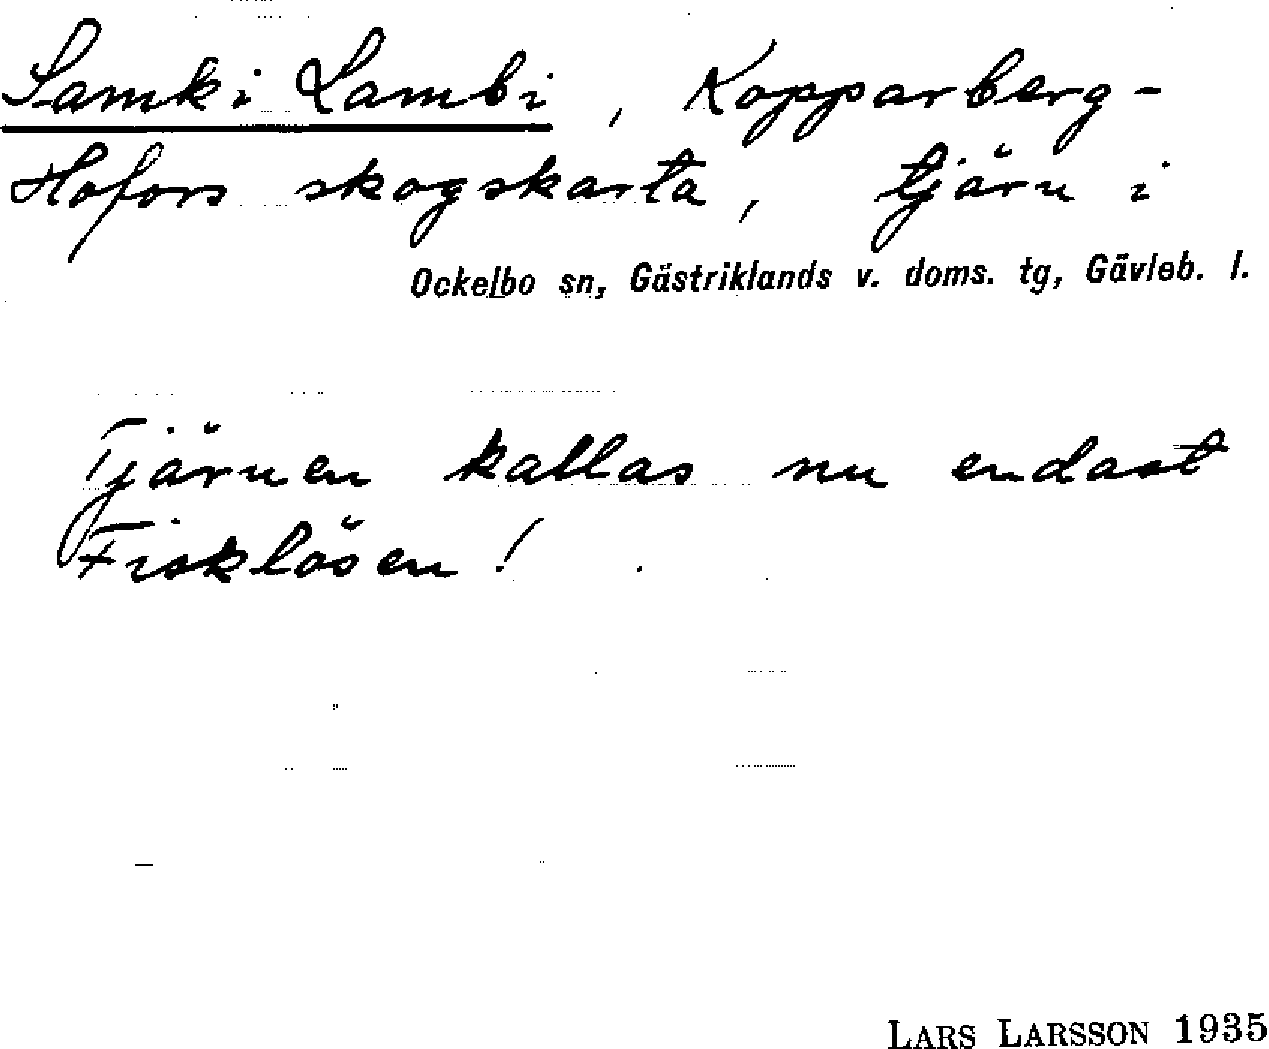 Samki Lambi, Kopparberg-
Hofors skogskarta, tjärn i
Ockelbo sn, Gästriklands v. doms. tg, Gävleb. l.
Tjärnen kallas nu endast
Fisklösen!
LARS LARSSON 1935